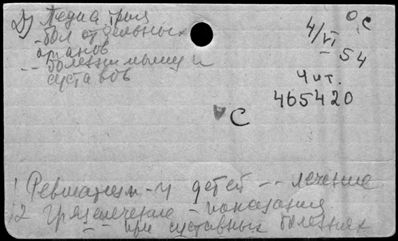 2) Педиатрия
- бол. отдельных
органов
-- Болезни мышц и
суставов
4/VI 54
о С
Чит.
465420
С
1 Ревматизм - у детей -- лечение
2 Грязелечение - показания
-- при суставных болезнях